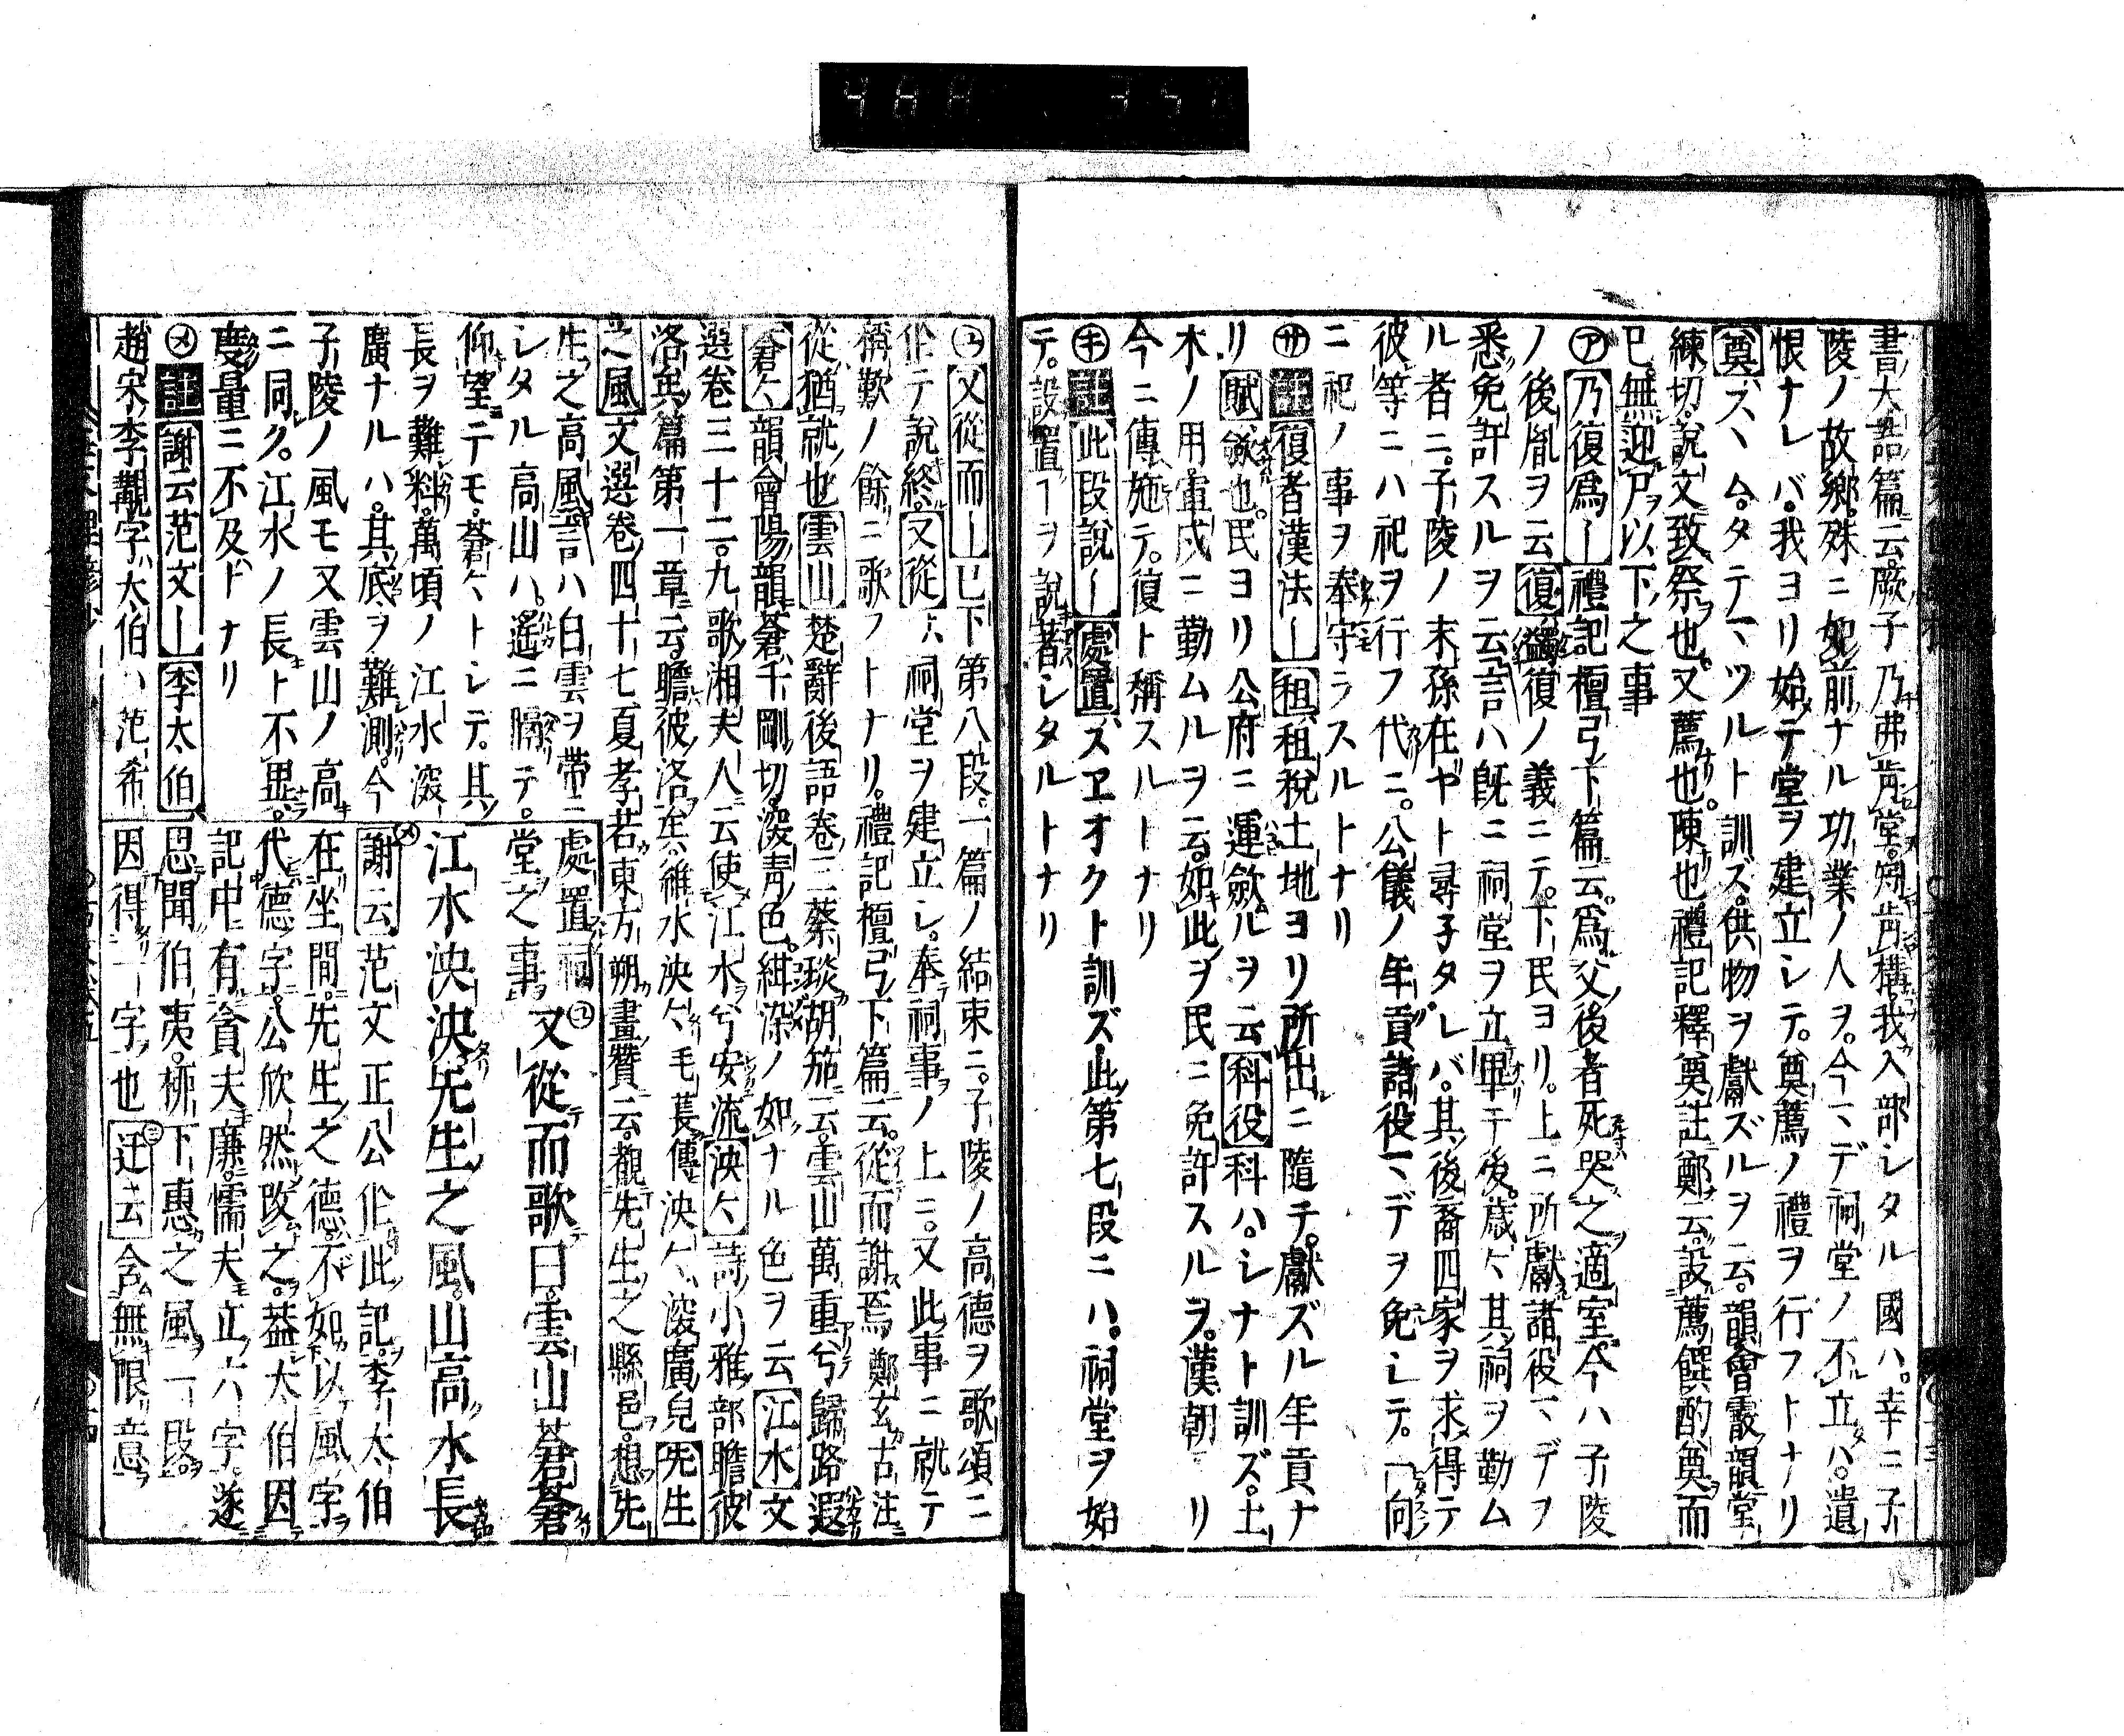 書大誥篇云。厥子乃弗肯堂。矧肯構。我入部シタル國ハ。幸ニ子
陵ノ故鄉。殊ニ如前ナル功業ノ人ヲ。今マデ祠堂ノ不立ハ。遺
恨ナレバ。我ヨリ始テ堂ヲ建立シテ。奠薦ノ禮ヲ行フトナリ
奠スヽム。タテマツルト訓ズ。供物ヲ獻ズルヲ云。韻會霰韻堂
練切。說文致祭也。又薦也陳也。禮記釋奠註鄭云。設薦饌酌奠而
已。無迎尸以下之事
㋐乃復爲ー禮記檀弓下篇云。爲父後者死哭之適室。今ハ子陵
ノ後胤ヲ云復蠲復ノ義ニテ。下民ヨリ。上ニ所獻諸役マデヲ
悉免許スルヲ云言ハ既ニ祠堂ヲ立畢テ後。歲々其祠ヲ勤ム
ル者ニ。子陵ノ末孫在ヤト尋子タレバ。其後裔四家ヲ求得テ
彼等ニハ祀ヲ行フ代ニ。公儀ノ年貢諸役マデヲ免シテ。一向
ニ祀ノ事ヲ奉守ラスルトナリ
㋚註復者漢法ー租租稅土地ヨリ所出ニ隨テ。獻ズル年貢ナ
リ賦斂也。民ヨリ公府ニ運斂ルヲ云科役科ハ。シナト訓ズ。土
木ノ用。軍戍ニ勤ムルヲ云。如此ヲ民ニ免許スルヲ。漢朝ヨリ
今ニ傳施テ。復ト稱スルトナリ
㋖註此段說ー處置スヱオクト訓ズ。此第七段ニハ。祠堂ヲ始
テ。設置ーヲ說著シタルトナリ
㋴又從而ー已下第八段。一篇ノ結束ニ。子陵ノ高德ヲ歌頌ニ
作テ說終。又從ハ祠堂ヲ建立シ。奉祠事ノ上ニ。又此事ニ就テ
稱歎ノ餘ニ歌フトナリ。禮記檀弓下篇云。從而謝焉鄭玄古注
從猶就也雲山楚辭後語卷三蔡琰胡笳云。雲山萬重兮歸路遐
蒼々韻會陽韻蒼千剛切。深靑色。紺染ノ如ナル色ヲ云江水文
選卷三十二。九歌湘夫人云使江水兮安流泱々詩小雅部瞻彼
洛矣篇第一章云。瞻彼洛矣。維水泱々毛萇傳泱々深廣皃先生
之風文選卷四十七夏孝若東方朔畫贊云。覩先生之縣邑。想先
生之高風言ハ白雲ヲ帶ニ
シタル高山ハ。遙ニ隔テ。
仰望テモ。蒼々トシテ。其
長ヲ難料。萬頃ノ江水深
廣ナルハ。其底ヲ難測。今
子陵ノ風モ又雲山ノ高
ニ同ク。江水ノ長ト不異。
度量ニ不及トナリ
㋱註謝云范文ー李太伯
趙宋李覯字太伯ハ范希
處置祠
堂之事。㋴又從而歌曰。雲山蒼蒼
江水泱泱先生之風。山高水長
㋱謝云范文正公作此記。李太伯
在坐間。先生之德。不如以風字
代德字。公欣然改之。蓋太伯因
記中有貪夫廉。懦夫立六字。遂
思聞伯夷。柳下惠之風一段。
因得一字也㋯迂云含無限意